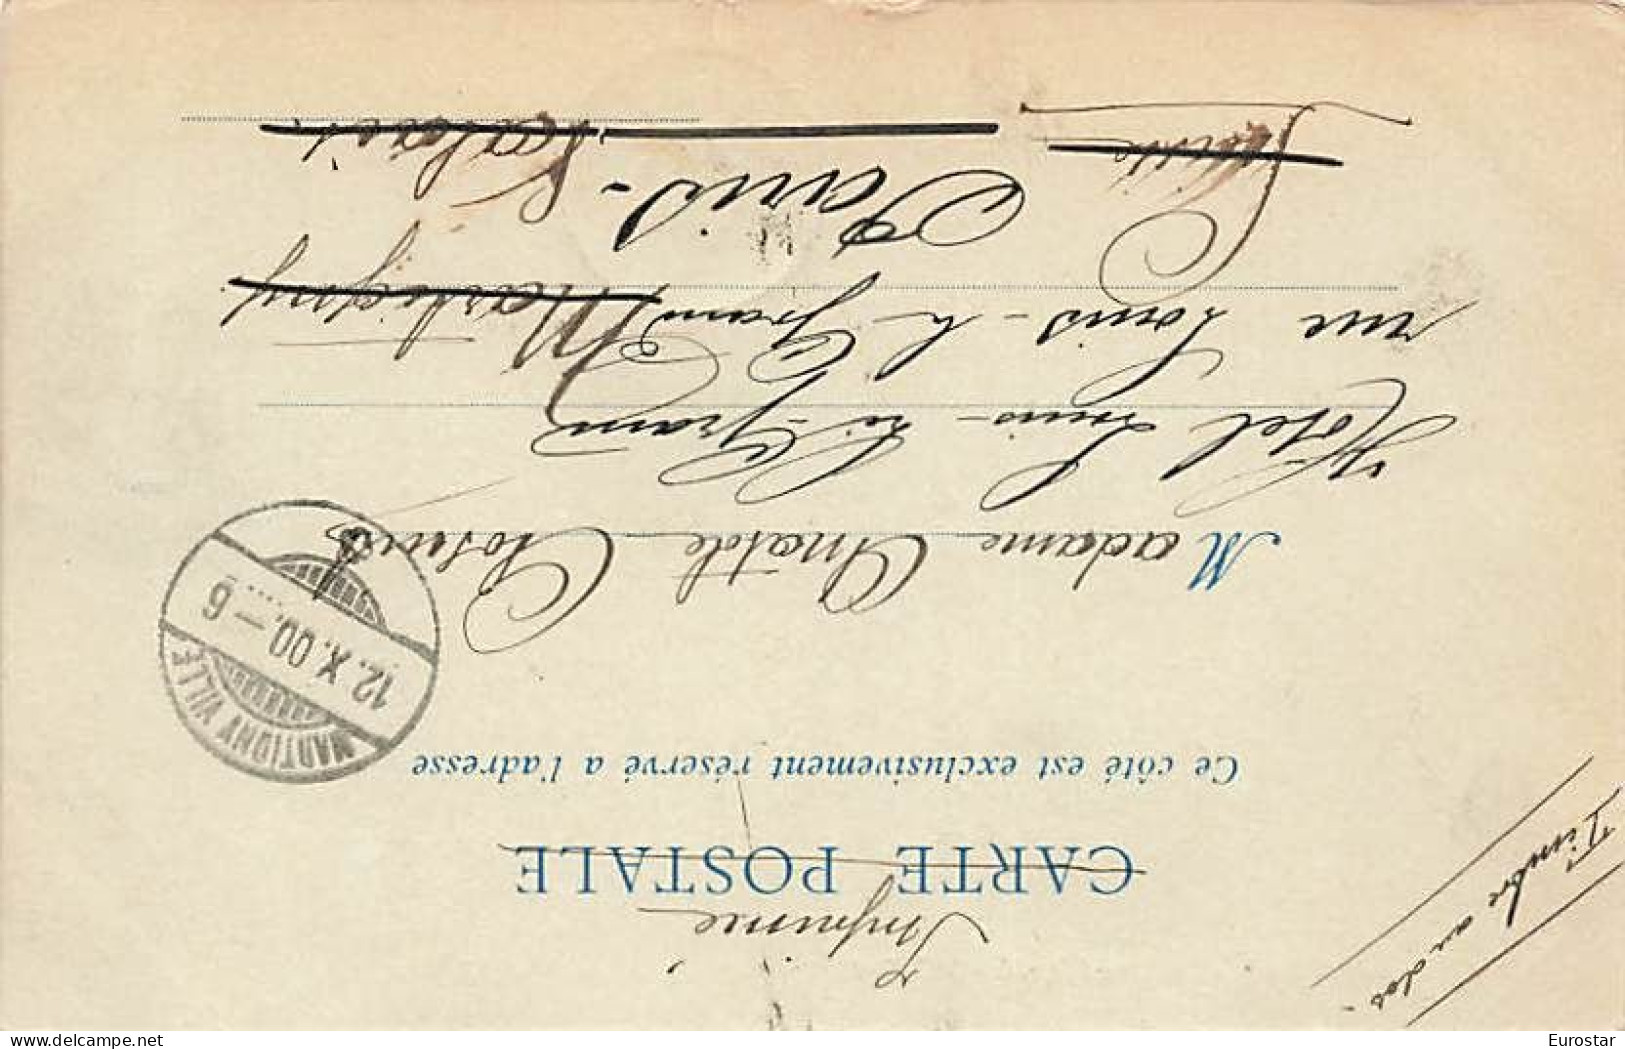 Imprimé
CARTE POSTALE
Ce côté est exclusivement réservé a l'adresse
Timbre au dos
MARTIGNY VILLE
12.X.00.–6
Madame Anatole
Hotel Louis-le-Grand
rue Louis-le Grand
Martigny
Paris-
Valais
Suisse
www.delcampe.net
Eurostar